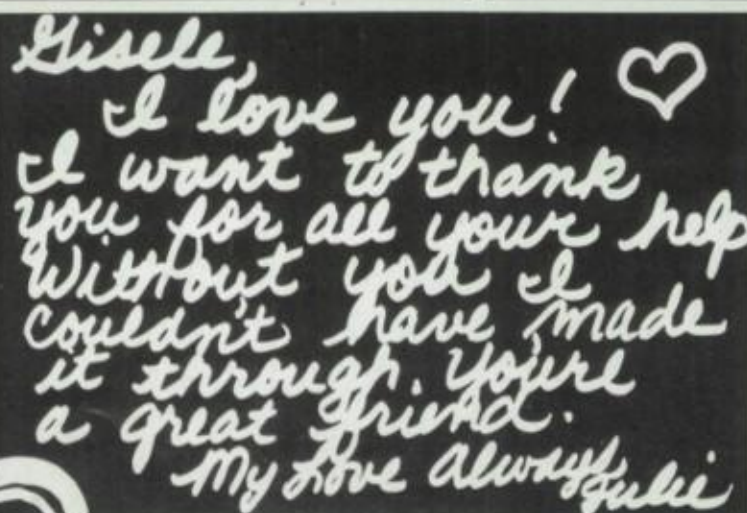 Gisele,
I love you!
I want to thank
you for all your help
Without you I
couldn't have made
it through. You're
a great friend.
My Love Always,
Julie